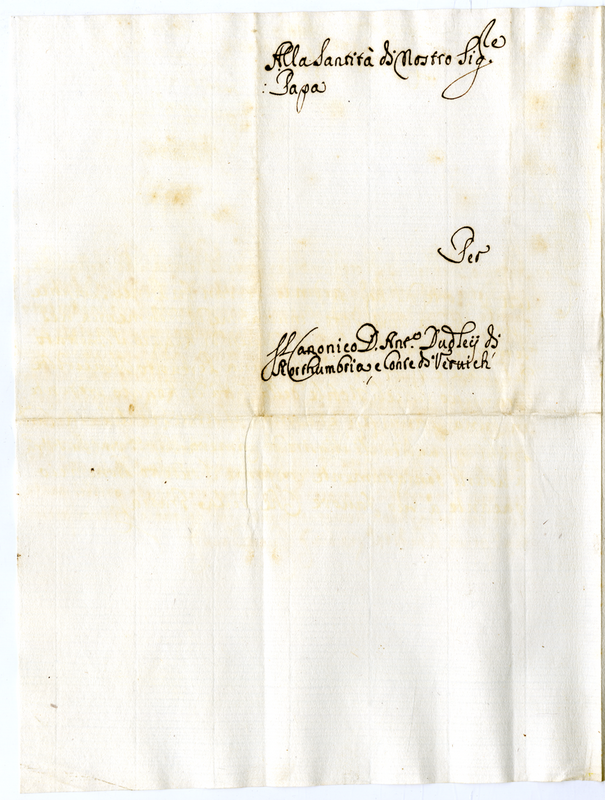 Alla Santità di Nostro Sig.re
Papa
Per
Il Canonico D. Ant.o Dudleij di
Northumbria, e Conte di Veruich